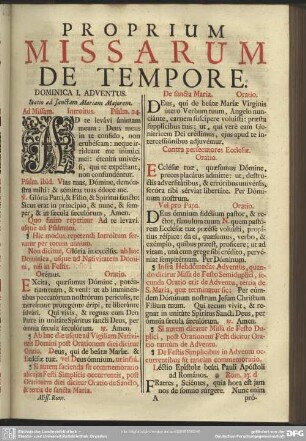 PROPRIUM
MISSARUM
DE TEMPORE.
DOMINICA I. ADVENTUS.
Statio ad sanctam Mariam Majorem.
Ad Missam. Introitus. Psalm. 24.
AD te levávi ánimam
meam: Deus meus
in te confído, non
erubéscam: neque ir-
rídeant me inimíci
mei: étenim univérsi,
qui te expéctant,
non confundéntur.
Psalm. ibid. Vias tuas, Dómine, demón-
stra mihi: & sémitas tuas édoce me.
℣. Glória Patri, & Fílio, & Spirítui sancto:
Sicut erat in princípio, & nunc, & sem-
per, & in sæcula sæculórum. Amen.
Quo finito repetitur Ad te levávi.
usque ad Psalmum.
¶ Hic modus repetendi Introitum ser-
vatur per totum annum.
Non dicitur, Glória in excélsis. ab hac
Dominica, usque ad Nativitatem Dómi-
ni, nisi in Festis.
Orémus. Oratio.
Excita, quæsumus Dómine, po-
téntiam tuam, & veni: ut ab imminénti-
bus peccatórum nostrórum perículis, te
mereámur protegénte éripi, te liberánte
salvári. Qui vivis, & regnas cum Deo
Patre in unitáte Spíritus sancti Deus, per
ómnia sæcula sæculórum. ℟. Amen.
¶ Ab hac die usque ad Vigiliam Nativita-
tis Domini post Orationem diei dicuntur
Oratio, Deus, qui de beátæ Maríæ. &
Ecclésiæ tuæ. vel Deus ómnium.
¶ Si autem facienda sit commemoratio
alicujus Festi Simplicis occurrentis, post
Orationem diei dicitur Oratio de Sancto,
& tertia de Sancta Maria.
Miss. Rom.
De Sancta Maria. Oratio.
Deus, qui de beátæ Maríæ Vírginis
útero Verbum tuum, Angelo nun-
tiánte, carnem suscípere voluísti: præsta
supplícibus tuis; ut, qui vere eam Ge-
nitrícem Dei crédimus, ejus apud te in-
tercessiónibus adjuvémur.
Contra persecutores Ecclesiæ.
Oratio.
Ecclésiæ tuæ, quæsumus Dómine,
preces placátus admítte: ut, destrú-
ctis adversitátibus, & erróribus univérsis,
secúra tibi sérviat libertáte. Per Dómi-
num nostrum.
Vel pro Papa. Oratio.
Deus ómnium fidélium pastor, & re-
ctor, fámulum tuum N. quem pastó-
rem Ecclésiæ tuæ præésse voluísti, pro-
pítius réspice: da ei, quæsumus, verbo,
& exémplo, quibus præest, profícere; ut ad
vitam, unà cum grege sibi crédito, per-
véniat sempitérnam. Per Dóminum.
¶ Infra Hebdómadas Adventus, quan-
do dicitur Missa de Festo Semiduplici, se-
cunda Oratio erit de Adventu, tertia de
S. Maria, quæ terminatur sic: Per eún-
dem Dóminum nostrum Jesum Christum
Fílium tuum. Qui tecum vivit, & re-
gnat in unitáte Spíritus Sancti Deus, per
ómnia sæcula sæculórum. ℟. Amen.
¶ Si autem dicatur Missa de Festo Du-
plici, post Orationem Festi dicitur tantùm
Oratio de Adventu.
¶ De Festis Simplicibus in Adventu oc-
currentibus fit tantùm commemoratio.
Léctio Epístolæ beáti Pauli Apóstoli
ad Romános. Rom. 13. d
Fratres, Sciéntes, quia hora est jam
nos de somno súrgere. Nunc enim
A pró-